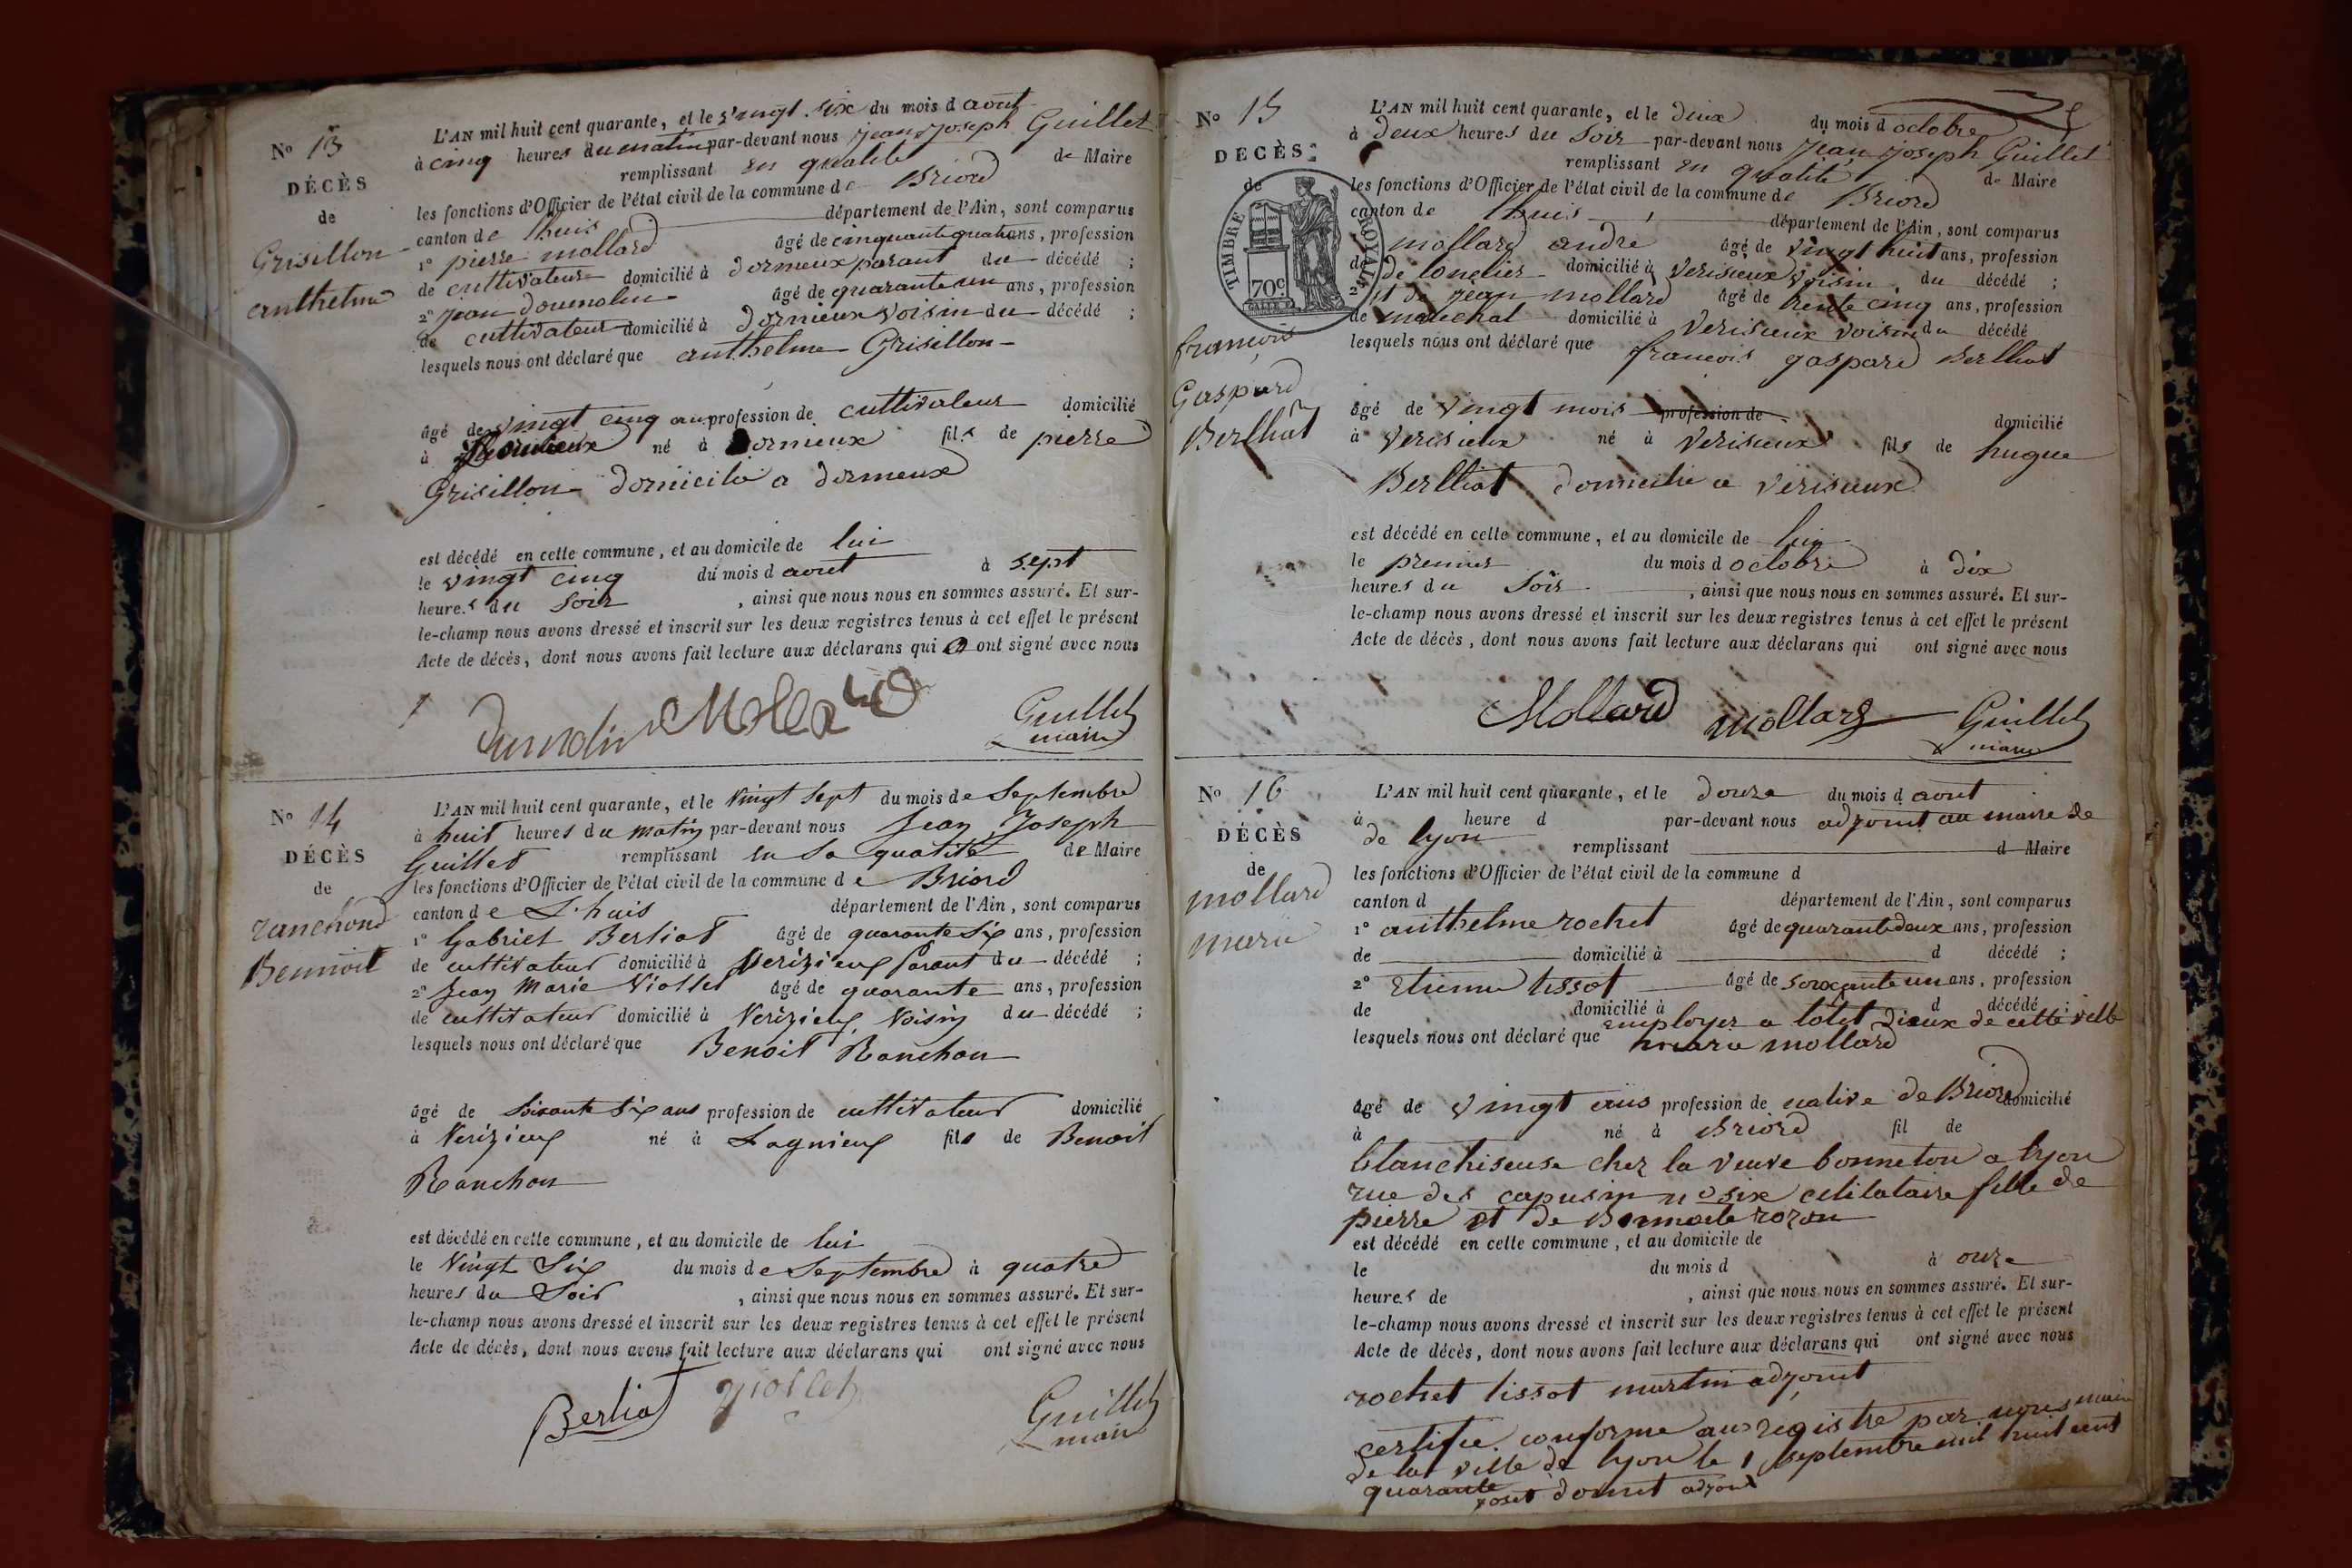 No 13
DÉCÈS
de
Grisillon
anthelme
L'AN mil huit cent quarante, et le vingt six du mois d aout
à cinq heures du matin par-devant nous jean joseph Guillet
remplissant en qualité de Maire
les fonctions d'Officier de l'état civil de la commune de Briord
canton de lhuis département de l'Ain, sont comparus
1º pierre mollard âgé de cinquante quatre ans, profession
de cultivateur domicilié à dormeux parant du décédé ;
2º jean dumolin âgé de quarante un ans, profession
de cultivateur domicilié à dornieux voisin du décédé ;
lesquels nous ont déclaré que anthelme Grisillon
âgé de vingt cinq an profession de cultivateur domicilié
à né à Dornieux fils de pierre
Grisillon domicilié a dormeux
est décédé en cette commune, et au domicile de lui
le vingt cinq du mois d aout à sept
heures du soir , ainsi que nous nous en sommes assuré. Et sur-
le-champ nous avons dressé et inscrit sur les deux registres tenus à cet effet le présent
Acte de décès, dont nous avons fait lecture aux déclarans qui ont signé avec nous
dumolin Mollard Guillet
maire
No 14
DÉCÈS
de
ranchond
Bennoit
L'AN mil huit cent quarante, et le vingt sept du mois de Septembre
à huit heures du matin par-devant nous Jean Joseph
Guillet remplissant en Sa qualité de Maire
les fonctions d'Officier de l'état civil de la commune de Briord
canton de L'huis département de l'Ain, sont comparus
1º Gabriel Berliat âgé de quarante Six ans, profession
de cultivateur domicilié à Verizieux Parant du décédé ;
2º Jean Marie Viollet âgé de quarante ans, profession
de cultivateur domicilié à Verizieux Voisin du décédé ;
lesquels nous ont déclaré que Benoit Ranchon
âgé de Soixante Six ans profession de cultivateur domicilié
à Verizieux né à Lagnieux fils de Benoit
Ranchon
est décédé en cette commune, et au domicile de lui
le Vingt Six du mois de Septembre à quatre
heures du Soir , ainsi que nous nous en sommes assuré. Et sur-
le-champ nous avons dressé et inscrit sur les deux registres tenus à cet effet le présent
Acte de décès, dont nous avons fait lecture aux déclarans qui ont signé avec nous
Berliat viollet Guillet
maire
No 15
DECÈS
de
TIMBRE ROYAL
70 c
françois
Gaspard
Berlliat
L'AN mil huit cent quarante, et le deux du mois d octobre
à deux heures du Soir par-devant nous jean joseph Guillet
remplissant en qualité de Maire
les fonctions d'Officier de l'état civil de la commune de Briord
canton de lhuis département de l'Ain, sont comparus
mollard andré âgé de vingt huit ans, profession
de tonelier domicilié à verisieux voisin du décédé ;
2º et de jean mollard âgé de trente cinq ans, profession
de marechal domicilié à verisieux voisin du décédé
lesquels nous ont déclaré que francois gaspard Berlliat
âgé de vingt mois profession de domicilié
à verisieux né à verisieux fils de hugue
Berlliat domicilié a verisieux
est décédé en cette commune, et au domicile de lui
le premier du mois d octobre à dix
heures du Soir , ainsi que nous nous en sommes assuré. Et sur-
le-champ nous avons dressé et inscrit sur les deux registres tenus à cet effet le présent
Acte de décès, dont nous avons fait lecture aux déclarans qui ont signé avec nous
Mollard Mollard Guillet
maire
No 16
DÉCÈS
de
mollard
marie
L'AN mil huit cent quarante, et le douze du mois d aout
à heure d par-devant nous adjoint au maire de
de lyon remplissant d Maire
les fonctions d'Officier de l'état civil de la commune d
canton d département de l'Ain, sont comparus
1º anthelme rochet âgé de quarante deux ans, profession
de domicilié à d décédé ;
2º etienne tissot âgé de soixante un ans, profession
de domicilié à d décédé ;
lesquels nous ont déclaré que employer a lotel dieux de cette ville
marie mollard
âgé de vingt ans profession de native de Briord domicilié
à né à Briord fil de
blanchiseuse chez la veuve bonneton a lyon
rue des capusin no six celibataire fille de
pierre et de
est décédé en cette commune, et au domicile de
le du mois d à onze
heures de , ainsi que nous nous en sommes assuré. Et sur-
le-champ nous avons dressé et inscrit sur les deux registres tenus à cet effet le présent
Acte de décès, dont nous avons fait lecture aux déclarans qui ont signé avec nous
rochet tissot martin adjoint
certifié conforme au registre par nous maire
de la ville de lyon le 1 septembre mil huit cent
quarante adjoint